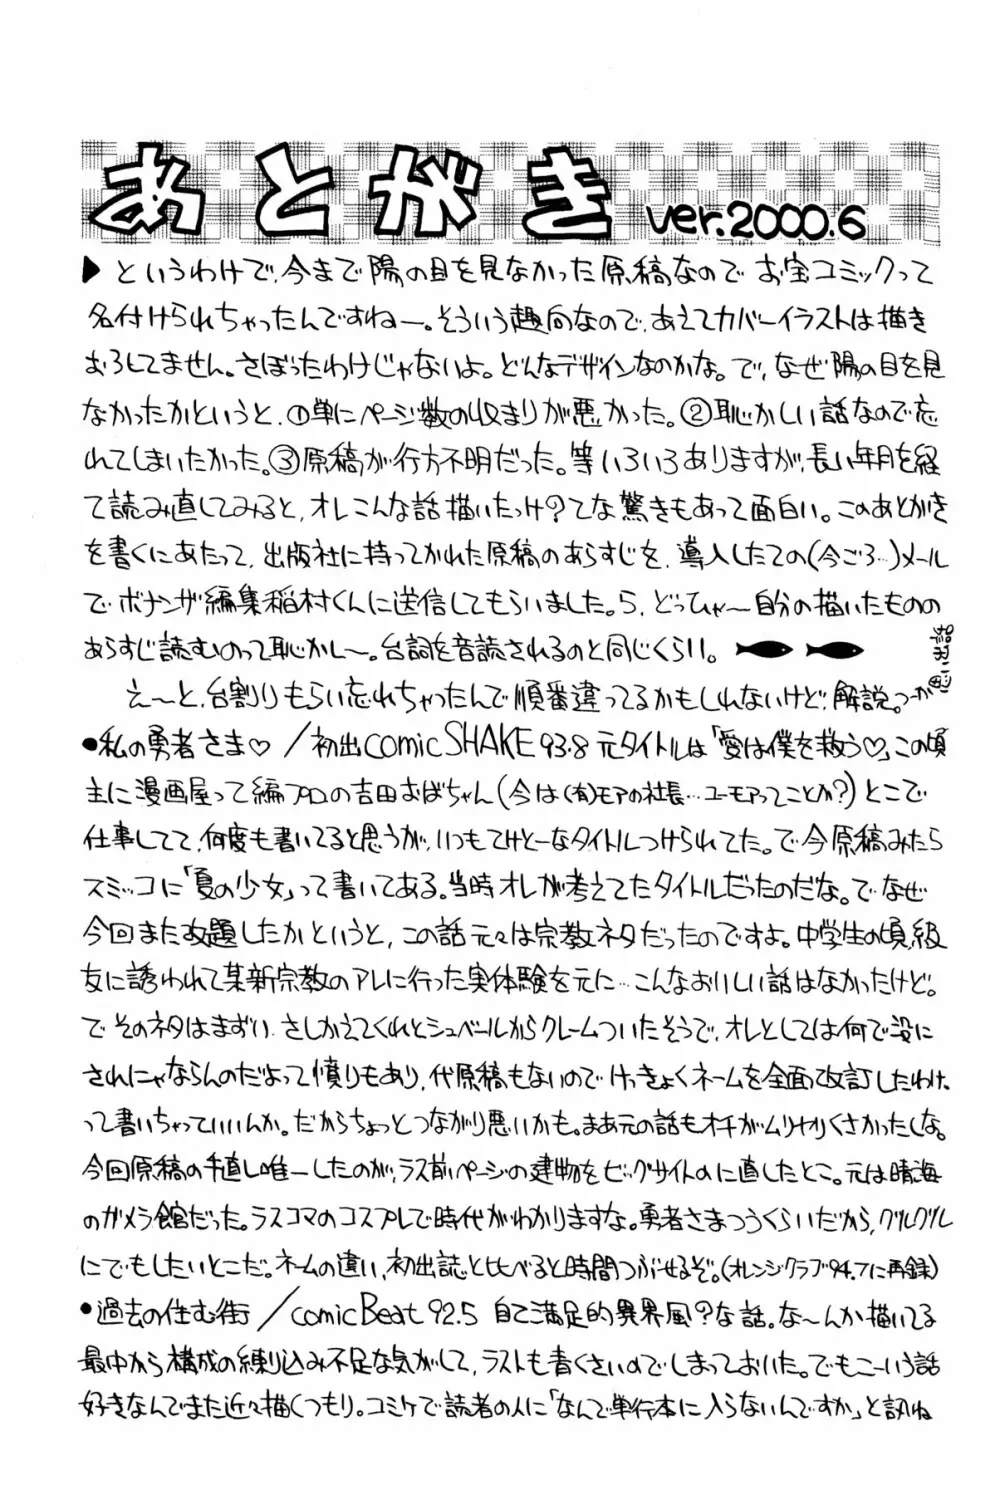 あとがき ver.2000.6
▶というわけで、今まで陽の目を見なかった原稿なので お宝コミックって
名付けられちゃったんですねー。そういう趣向なので、あえてカバーイラストは描き
おろしてません。さぼったわけじゃないよ。どんなデザインなのかな。で、なぜ陽の目を見
なかったかというと、①単にページ数の収まりが悪かった。②恥かしい話なので忘
れてしまいたかった。③原稿が行方不明だった。等いろいろありますが、長い年月を経
て読み直してみると、オレこんな話描いたっけ?てな驚きもあって面白い。このあとがき
を書くにあたって、出版社に持ってかれた原稿のあらすじを、導入したての(今ごろ…)メール
でボナンザ編集稲村くんに送信してもらいました。ら、どっひゃ〜自分の描いたものの
あらすじ読むのって恥かし〜。台詞を音読されるのと同じくらい。
え〜と、台割りもらい忘れちゃったんで順番違ってるかもしれないけど、解説。つか思い出話
●私の勇者さま♡／初出comic SHAKE 93.8 元タイトルは「愛は僕を救う♡」この頃
主に漫画屋って編プロの吉田おばちゃん(今は(有)モアの社長…ユーモアってことか?)とこで
仕事してて、何度も書いてると思うが、いつもてけとーなタイトルつけられてた。で今原稿みたら
スミッコに「夏の少女」って書いてある。当時オレが考えてたタイトルだったのだな。でなぜ
今回また改題したかというと、この話元々は宗教ネタだったのですよ。中学生の頃、級
友に誘われて某新宗教のアレに行った実体験を元に…こんなおいしい話はなかったけど。
でそのネタはまずい、さしかえてくれとシュベールからクレームついたそうで、オレとしては何で没に
されにゃならんのだよって憤りもあり、代原稿もないのでけっきょくネームを全面改訂したわけ、
って書いちゃっていいんか。だからちょっとつながり悪いかも。まあ元の話もオチがムリヤリくさかったしな。
今回原稿の手直し唯一したのが、ラス前ページの建物をビッグサイトのに直したとこ。元は晴海
のガメラ館だった。ラスコマのコスプレで時代がわかりますな。勇者さまつうくらいだから、グルグル
にでもしたいとこだ。ネームの違い、初出誌と比べると時間つぶせるぞ。(オレンジクラブ94.7に再録)
●過去の住む街／comic Beat 92.5 自己満足的異界風?な話。な〜んか描いてる
最中から構成の練り込み不足な気がして、ラストも青くさいのでしまっておいた。でもこーいう話
好きなんでまた近々描くつもり。コミケで読者の人に「なんで単行本に入らないんですか」と訊ね